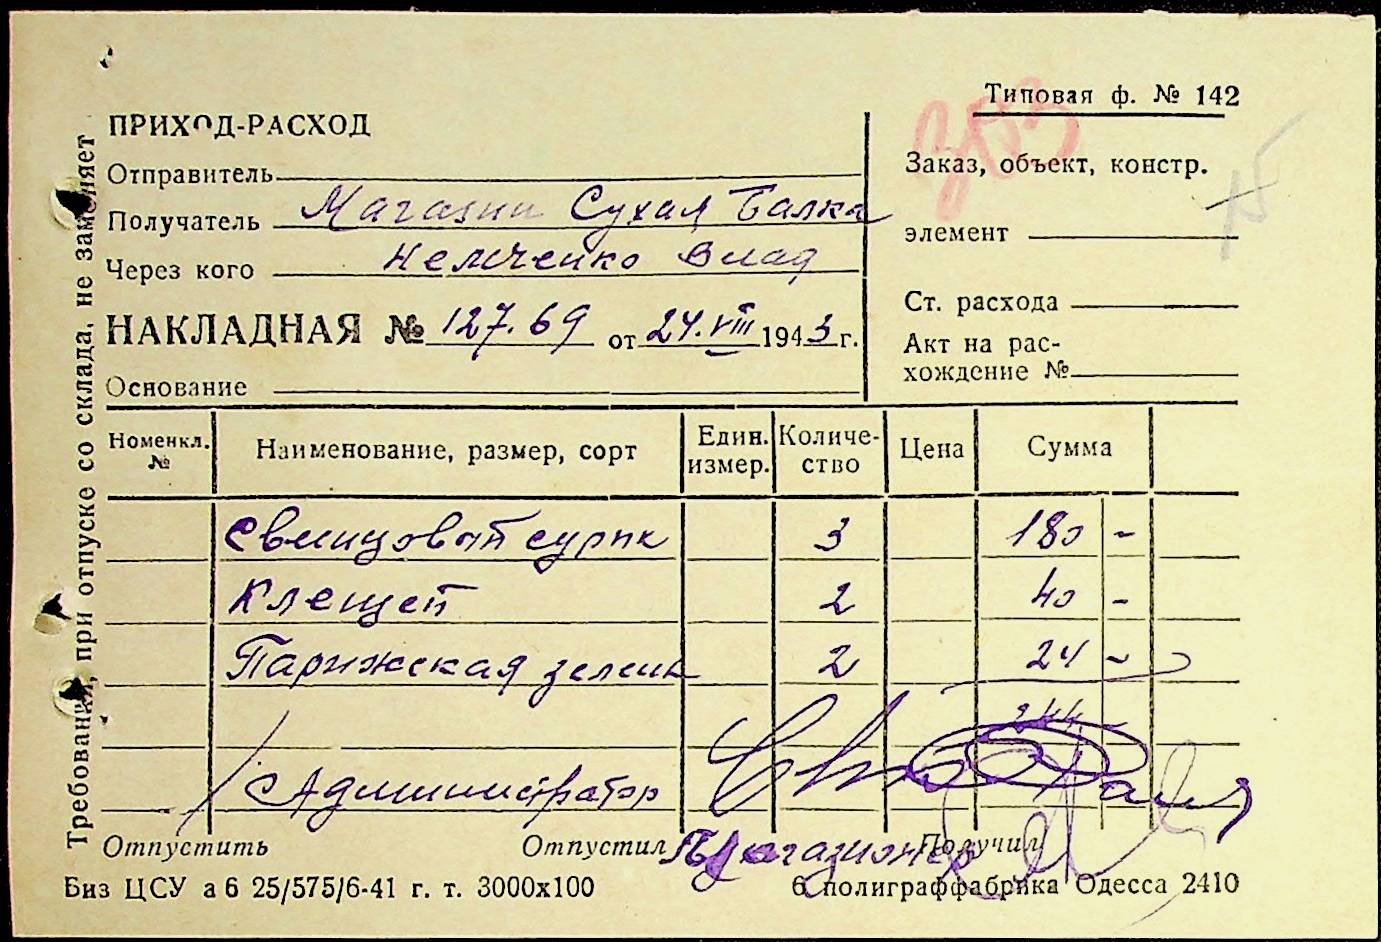 Типовая ф. № 142
ПРИХОД-РАСХОД
Отправитель
Получатель Магазин Сухая Балка
Через кого Немченко Влад
НАКЛАДНАЯ № 127.69 от 24.VIII 1943 г.
Основание
Заказ, объект, констр.
15
элемент
Ст. расхода
Акт на рас-
хождение №
Номенкл. № Наименование, размер, сорт Един. измер. Количе-ство Цена Сумма
Свинцовый сурик 3 180 -
Клещей 2 40 -
Парижская зелень 2 24 -
244
Администратор
Отпустить Отпустил Получил
Биз ЦСУ а 6 25/575/6-41 г. т. 3000х100 6 полиграффабрика Одесса 2410
Требования, при отпуске со склада, не заменяет